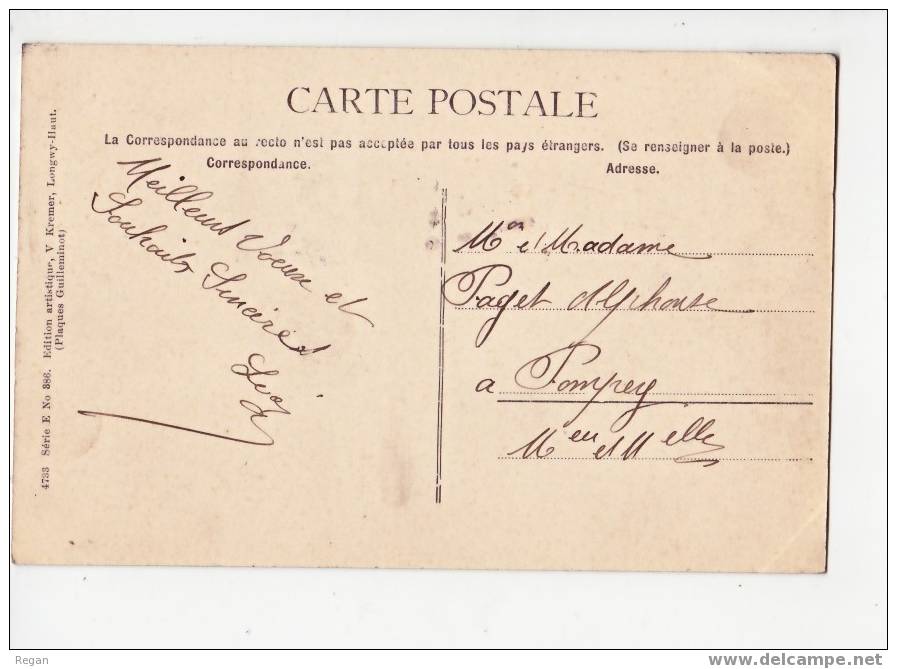 CARTE POSTALE
La Correspondance au recto n'est pas acceptée par tous les pays étrangers. (Se renseigner à la poste.)
Correspondance.
Adresse.
Meilleurs Voeux et
Souhaits Sincères
Mon et Madame
Paget Alphonse
a Pompey
M eu et M elle
4733 Série E No 386. Edition artistique, V Kremer, Longwy-Haut.
(Plaques Guilleminot)
Regan
delcampe.net